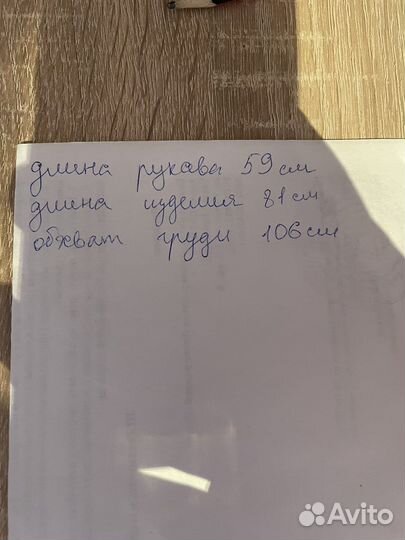 длина рукава 59 см
длина изделия 81 см
обхват груди 106 см
Avito